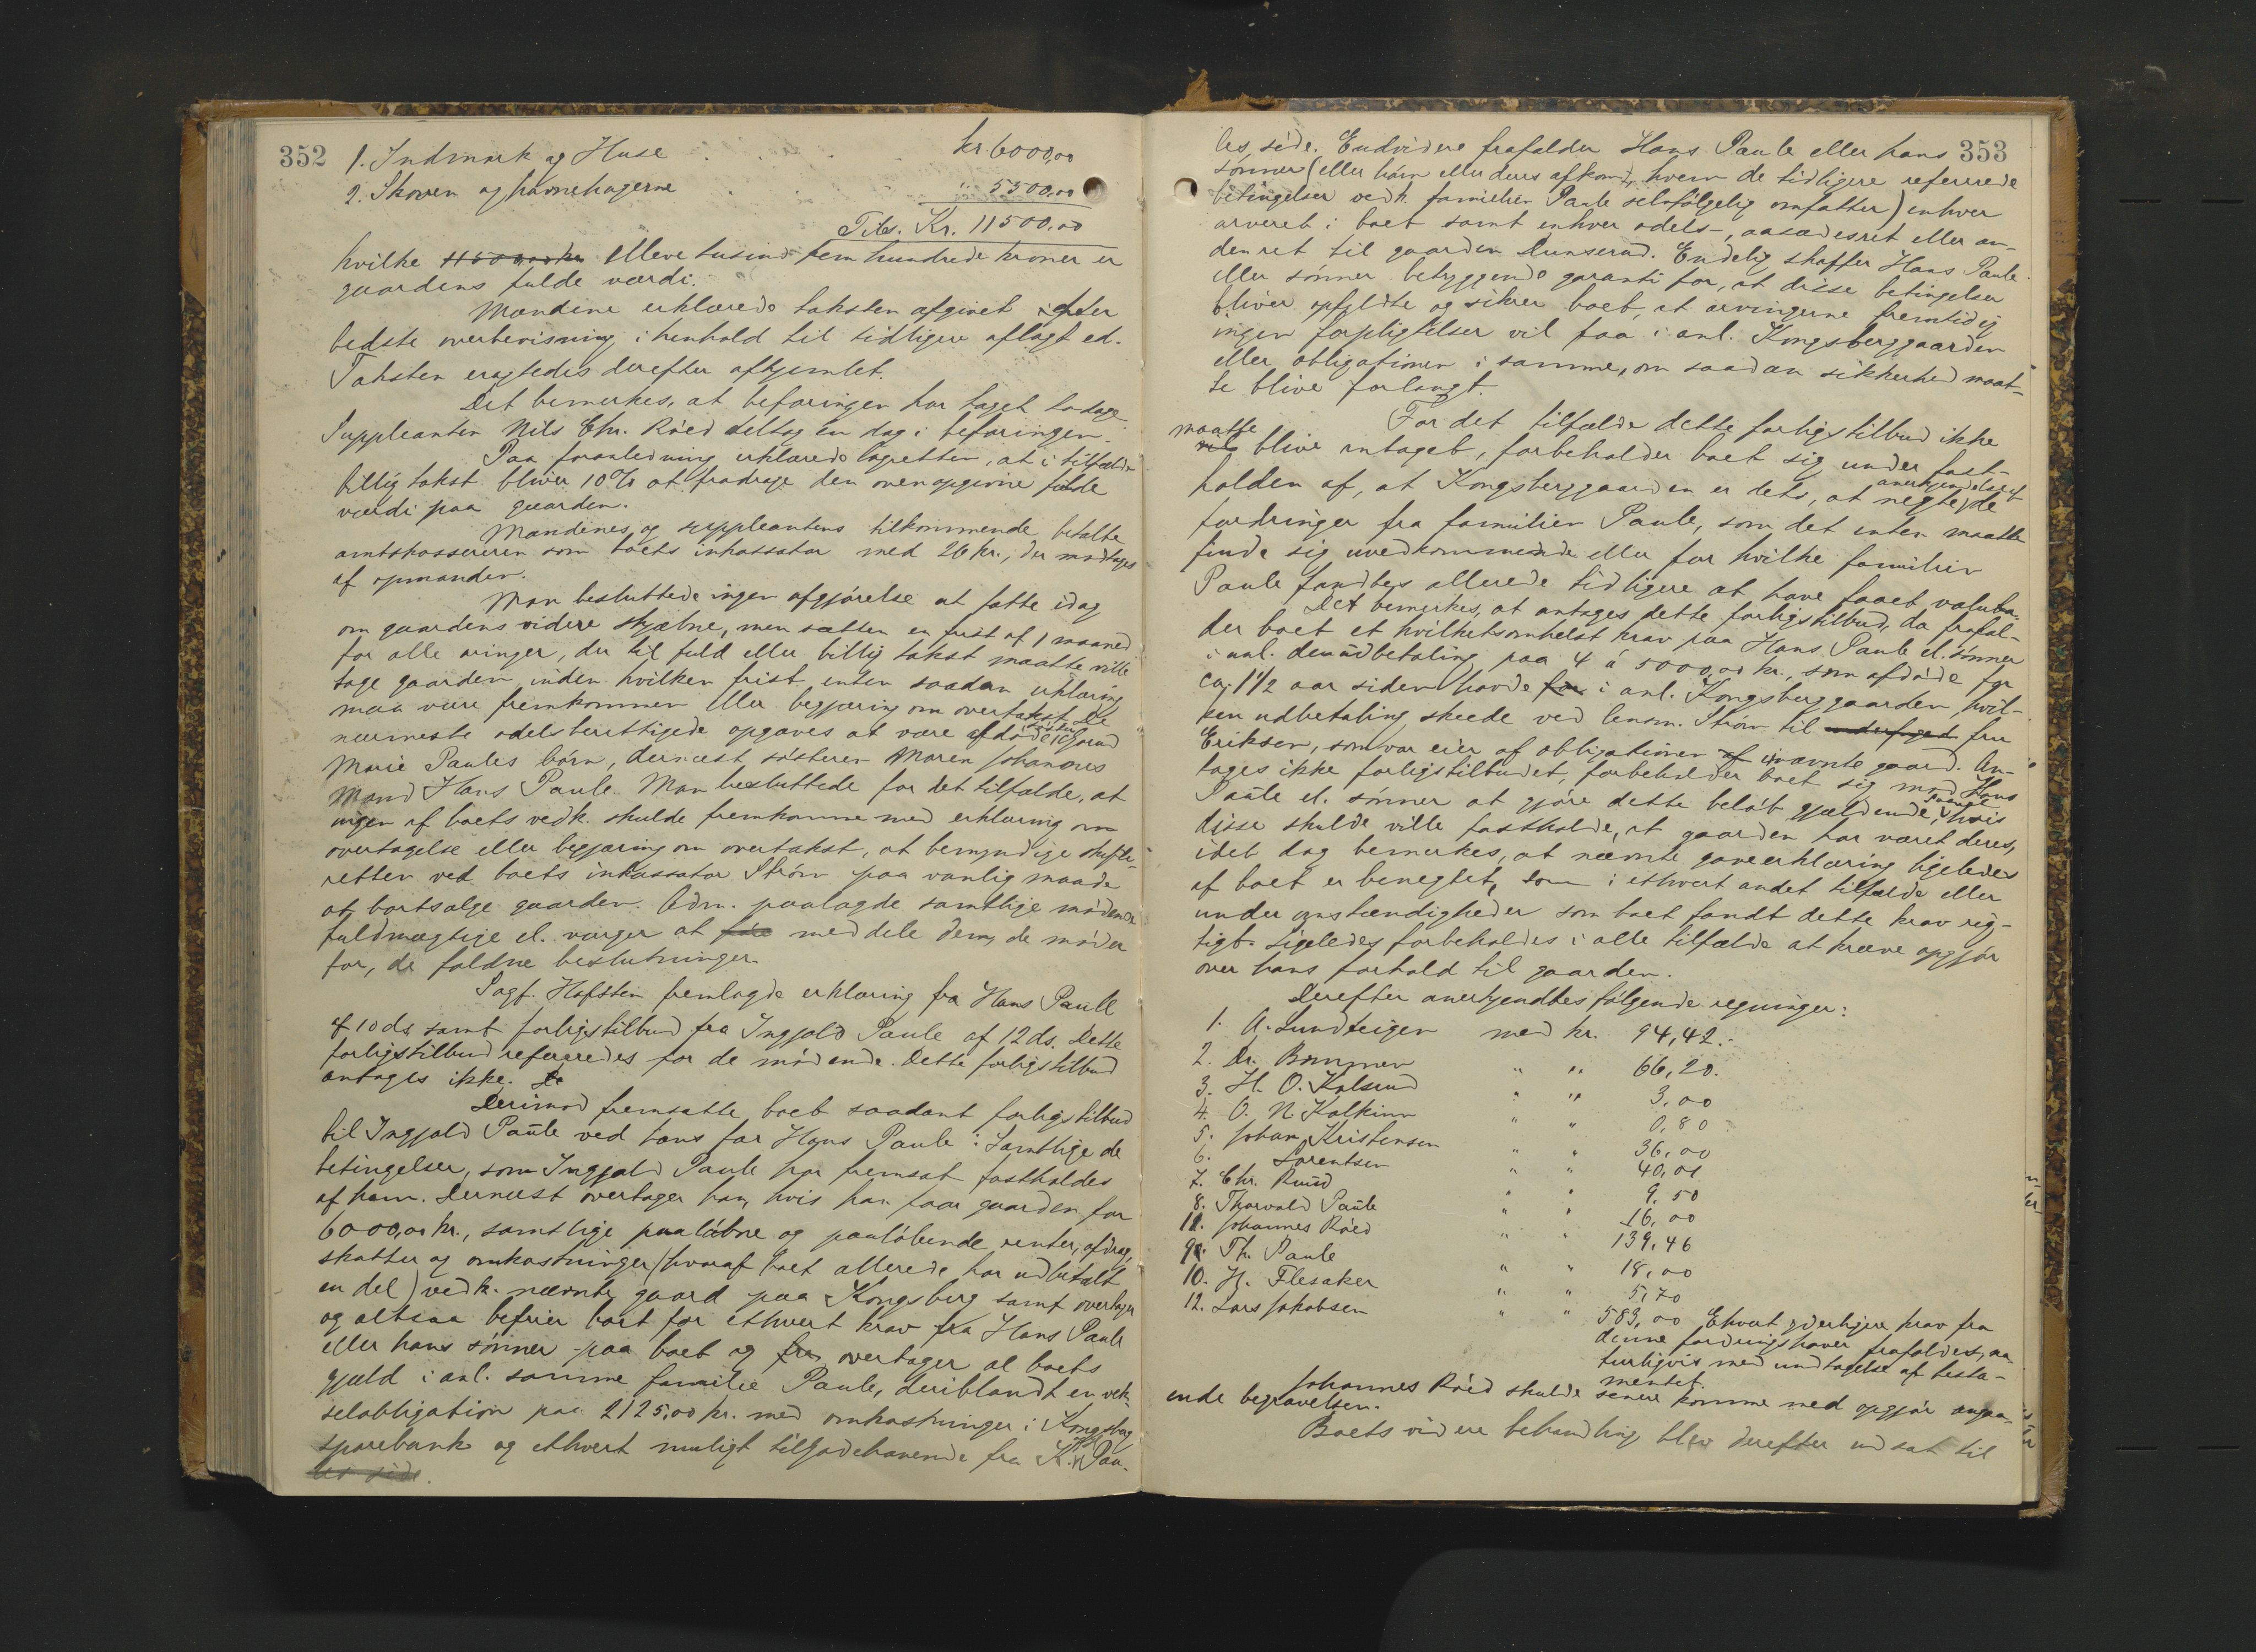 352
1. Indmark og Huse . . . kr. 6000,00
2. Skoven og havnehagerne . . " 5500,00
Tils. Kr. 11500,00
hvilke elleve tusind fem hundrede kroner er
gaardens fulde værdi.
Mændene erklærede taksten afgivet efter
bedste overbevisning i henhold til tidligere aflagt ed.
Taksten eragtedes derefter afhjemlet.
Det bemerkes, at befaringen har taget to dage
Suppleanten Nils Chr. Røed deltog en dag i befaringen.
Paa foranledning erklærede lagretten, at i tilfælde
billig takst bliver 10% at fradrage den ovenopgivne fulde
værdi paa gaarden.
Mændenes og suppleantens tilkommende betalte
amtskassereren som boets inkassator med 26 kr., der modtages
af opmanden.
Man besluttede ingen afgjørelse at fatte idag
om gaardens videre skjæbne, men sætter en frist af 1 maaned
for alle arvinger, der til fuld eller billig takst maatte ville
tage gaarden, inden hvilken frist enten saadan erklæring
maa være fremkommen eller begjæring om overtakst. De
nærmeste odelsberettigede opgaves at være afdøde søster
Marie Paules børn, dernæst søsteren Maren Johannes
Mand Hans Paule. Man besluttede for det tilfælde, at
ingen af boets vedk. skulde fremkomme med erklæring om
overtagelse eller begjæring om overtakst, at bemyndige skifte-
retten ved boets inkassator Strøm paa vanlig maade
at bortsælge gaarden. Adm. paalagde samtlige mødende
fuldmægtige el. værger at meddele dem, de møder
for, de faldne beslutninger.
Sagf. Hofsten fremlagde erklæring fra Hans Paule
af 10 ds. samt forligstilbud fra Ingjald Paule af 12 ds. Dette
forligstilbud refereredes for de mødende. Dette forligstilbud
antages ikke. De
Derimod fremsatte boet saadant forligstilbud
til Ingjald Paule ved hans far Hans Paule: Samtlige de
betingelser, som Ingjald Paule har fremsat fastholdes
af ham. Dernæst overtager han, hvis han faar gaarden for
6000,00 kr., samtlige paaløbne og paaløbende renter, afdrag,
skatter og omkostninger (hvoraf boet allerede har udbetalt
en del) vedk. nævnte gaard paa Kongsberg samt overtager
og altsaa befrier boet for ethvert krav fra Hans Paule
eller hans sønner paa boet og overtager al boets
gjæld i anl. samme familie Paule, deriblandt en vek-
selobligation paa 2125,00 kr. med omkostninger i Kongsberg
sparebank og ethvert muligt tilgodehavende fra K. Pau-
les side.
353
les side. Endvidere frafalder Hans Paule eller hans
sønner (eller børn eller deres afkom, hvem de tidligere refererede
betingelser vedk. familien Paule selvfølgelig omfatter) enhver
arveret i boet samt enhver odels-, aasædesret eller an-
den ret til gaarden Dunserud. Endelig skaffer Hans Paule
eller sønner betryggende garanti for, at disse betingelser
bliver opfyldte og sikrer boet, at arvingerne fremtidig
ingen forpligtelser vil faa i anl. Kongsberggaarden
eller obligationen i samme, om saadan sikkerhed maat-
te blive forlangt.
For det tilfælde dette forligstilbud ikke
maatte blive antaget, forbeholder boet sig under fast-
holden af, at Kongsberggaarden er dets, at negte anerkjendelse af de
fordringer fra familien Paule, som det enten maatte
finde sig uvedkommende eller for hvilke familien
Paule fandtes allerede tidligere at have faaet valuta.
Det bemerkes, at antages dette forligstilbud, da frafal-
der boet et hvilketsomhelst krav paa Hans Paule el. sønner
i anl. den udbetaling paa 4 á 5000,00 kr., som afdøde for
ca. 1 1/2 aar siden havde i anl. Kongsberggaarden, hvil-
ken udbetaling skeede ved lensm. Strøm til fru
Eriksen, som var eier af obligationen i nævnte gaard. An-
tages ikke forligstilbudet, forbeholder boet sig mod Hans
Paule el. sønner at gjøre dette beløb gjældende, hvis
disse skulde ville fastholde, at gaarden har været deres,
idet dog bemerkes, at nævnte gaveerklæring ligeledes
af boet er benegtet, som i ethvert andet tilfælde eller
under omstændigheder som boet fandt dette krav rig-
tigt. Ligeledes forbeholdes i alle tilfælde at kræve opgjør
over hans forhold til gaarden.
Derefter anerkjendtes følgende regninger:
1. A. Lundteigen med kr. 94,42.
2. Dr. Bommen " " 66,20.
3. H. O. Kalsrud " " 3,00
4. O. N. Kolkinn " " 0,80
5. Johan Kristensen " " 36,00
6. Sorentsen " " 40,01
7. Chr. Ruud " " 9,50
8. Thorvald Paule " " 16,00
11. Johannes Røed " " 139,46
9. Th. Paule 18,00
10. H. Flesaker " " 5,70
12. Lars Jakobsen " " 583,00 Ethvert yderligere krav fra
denne fordringshaver frafaldes, na-
turligvis med undtagelse af testa-
mentet.
Johannes Røed skulde senere komme med opgjør angaa-
ende begravelsen.
Boets videre behandling blev derefter udsat til